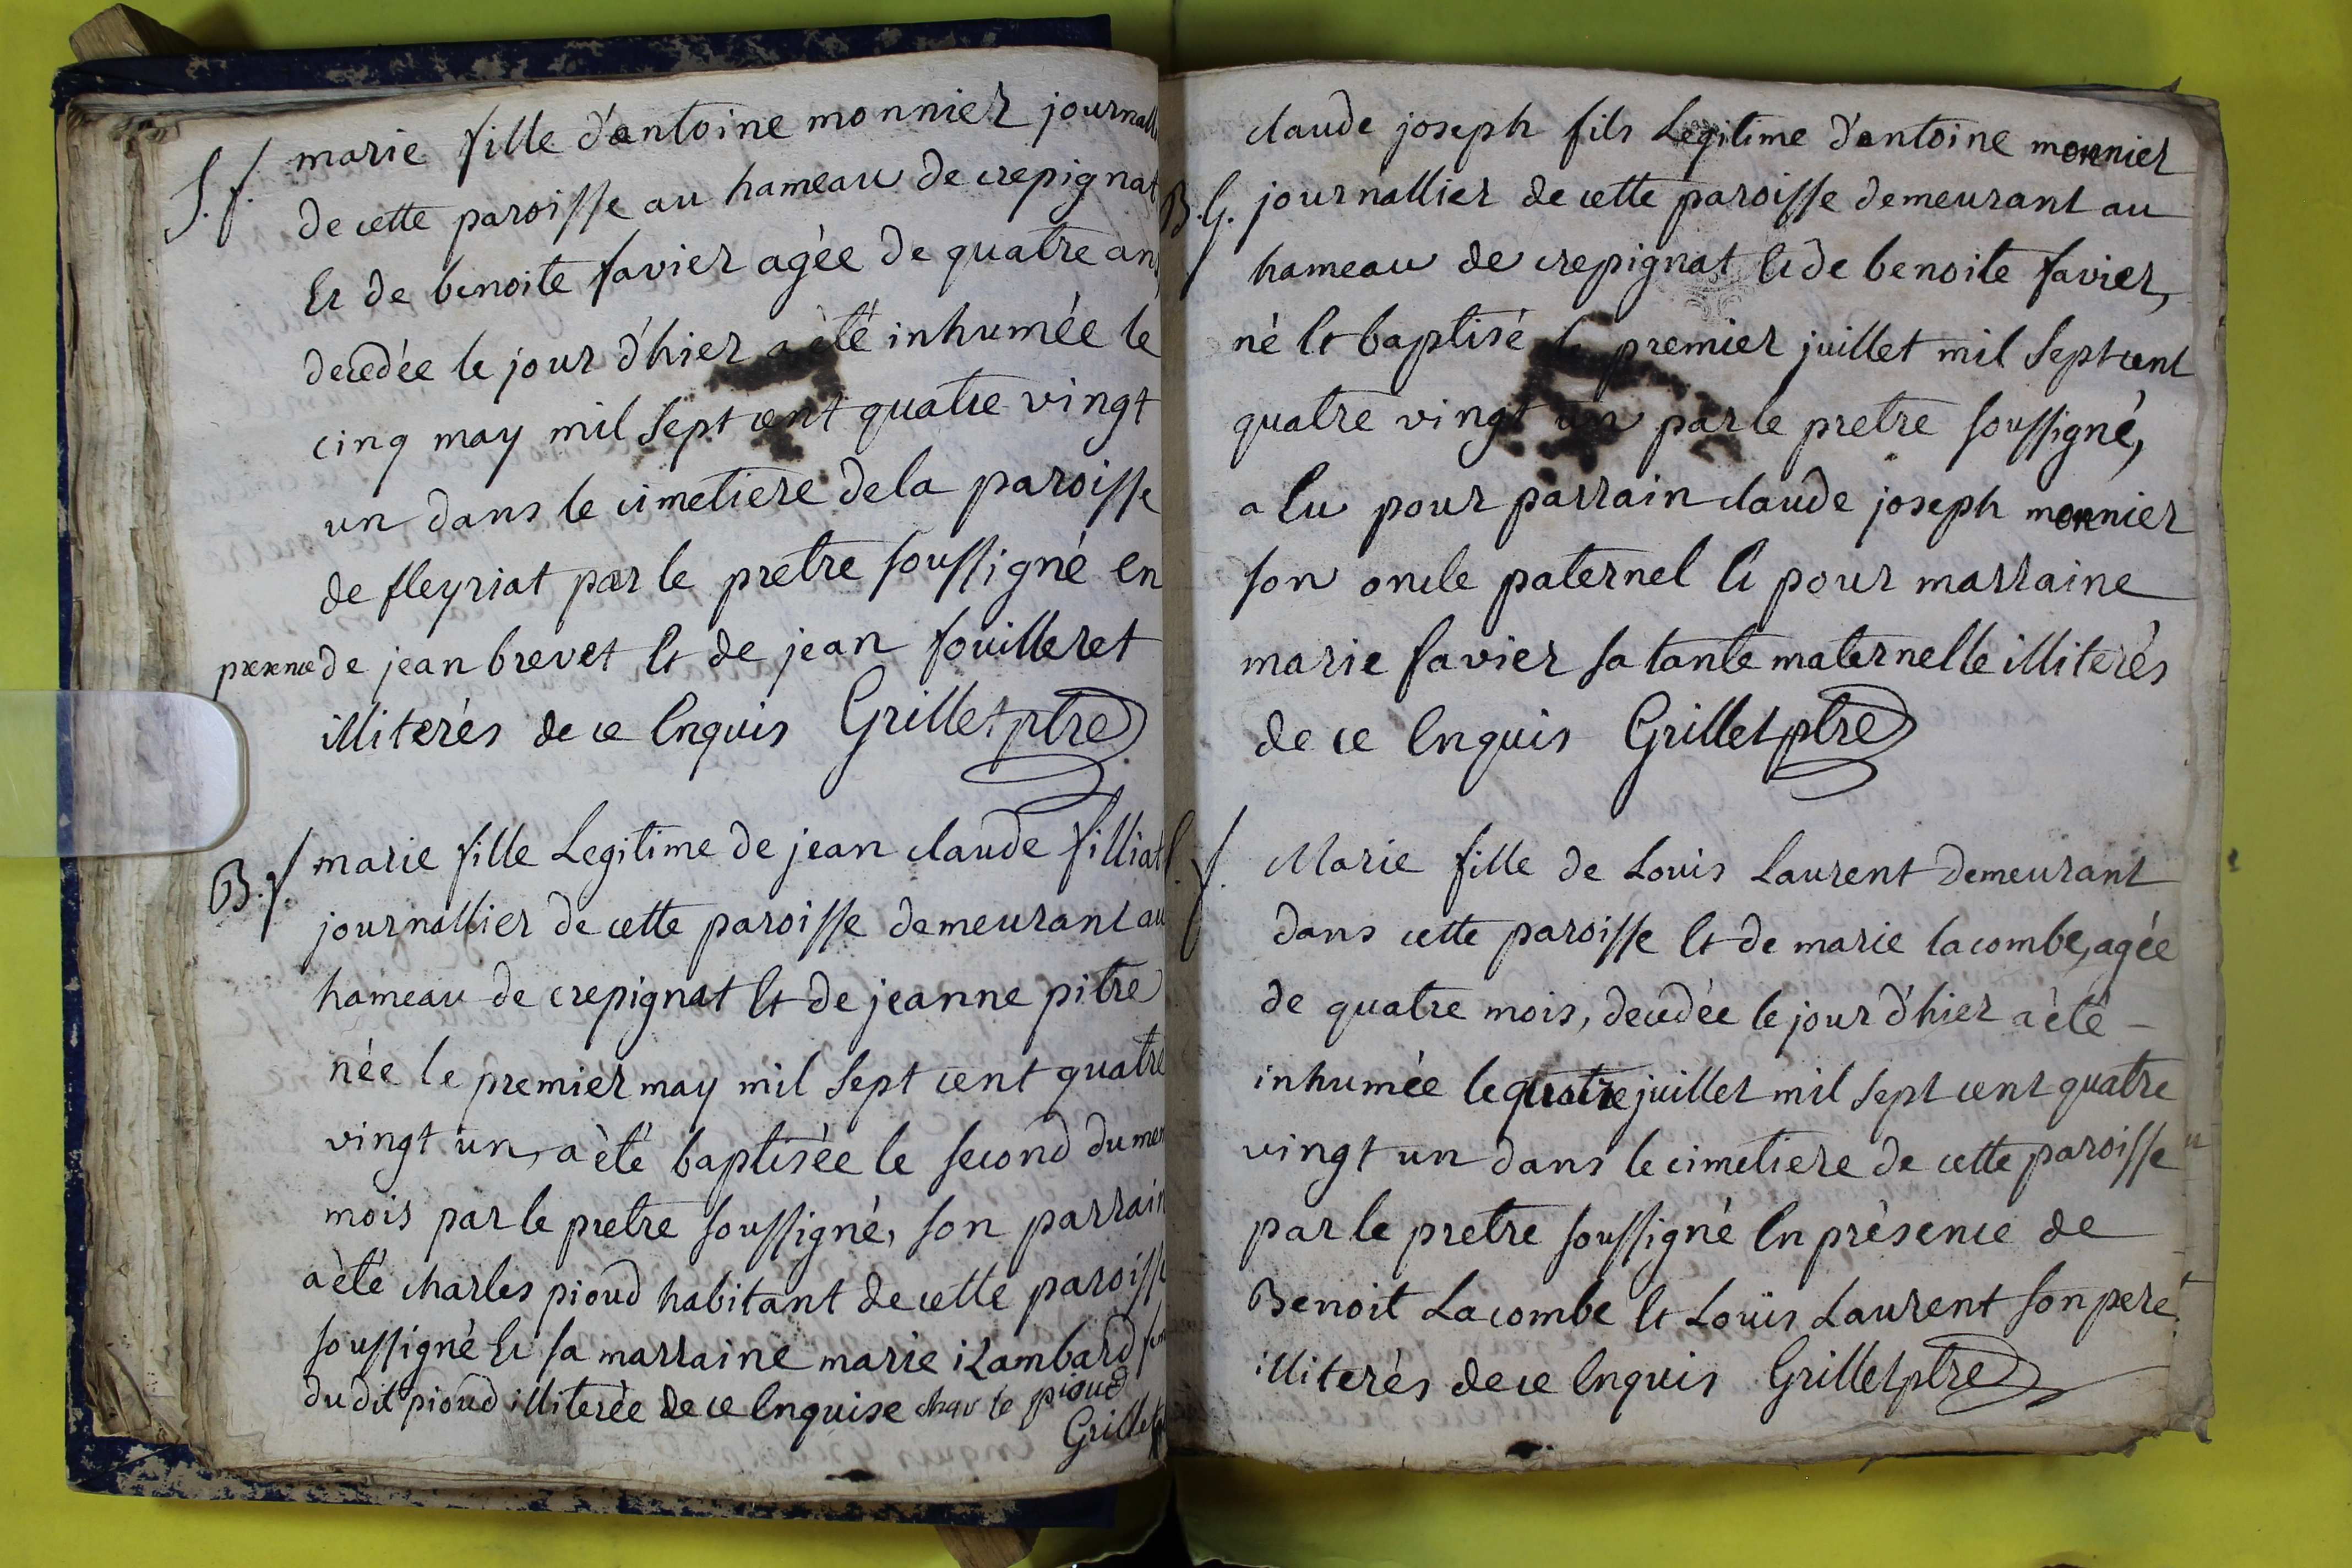 S. f. marie fille d'antoine monnier journall
de cette paroisse au hameau de crepignat
Et de benoite favier agèe de quatre ans
decedèe le jour d'hier a èté inhumée le
cinq may mil Sept cent quatre vingt
un dans le cimetiere dela paroisse
de fleyriat par le pretre soussigné En
presence de jean brevet Et de jean fouilleret
illiterès de ce Enquis Grillet ptre
B. f. marie fille Legitime de jean claude filliat
journallier de cette paroisse demeurant au
hameau de crepignat Et de jeanne pitre
nèe le premier may mil Sept cent quatre
vingt un, a èté baptisèe le second du mem
mois par le pretre soussigné, son parrain
a èté charles pioud habitant de cette paroisse
soussigné Et sa marraine marie izambard fem
dudit pioud illiterèe de ce Enquise char le pioud
Grillet
claude joseph fils Legitime d'antoine monnier
B. G. journallier de cette paroisse demeurant au
hameau de crepignat Et de benoite favier,
né Et baptisé le premier juillet mil Sept cent
quatre vingt un par le pretre soussigné,
a Eu pour parrain claude joseph monnier
son oncle paternel Et pour marraine
marie favier sa tante maternelle illiterès
de ce Enquis Grillet ptre
S. f. Marie fille de Louis Laurent demeurant
dans cette paroisse Et de marie lacombe, agèe
de quatre mois, decedèe le jour d'hier a èté -
inhumèe le quatre juillet mil sept cent quatre
vingt un dans le cimetiere de cette paroisse
par le pretre soussigné En prèsence de
Benoit Lacombe Et Louis Laurent son pere
illiterès de ce Enquis Grillet ptre